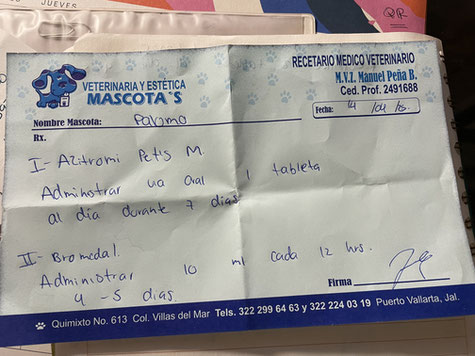 JUEVES
QR
VETERINARIA Y ESTÉTICA
MASCOTA'S
RECETARIO MEDICO VETERINARIO
M.V.Z. Manuel Peña B.
Ced. Prof. 2491688
Nombre Mascota: Palomo
Fecha:
Rx.
I- Azitromi Pets M.
Adminstrar via Oral 1 tableta
al dia durante 7 dias
II- Bromedal.
Administrar 10 ml cada 12 hrs.
4 -5 dias
Firma
Quimixto No. 613 Col. Villas del Mar Tels. 322 299 64 63 y 322 224 03 19 Puerto Vallarta, Jal.